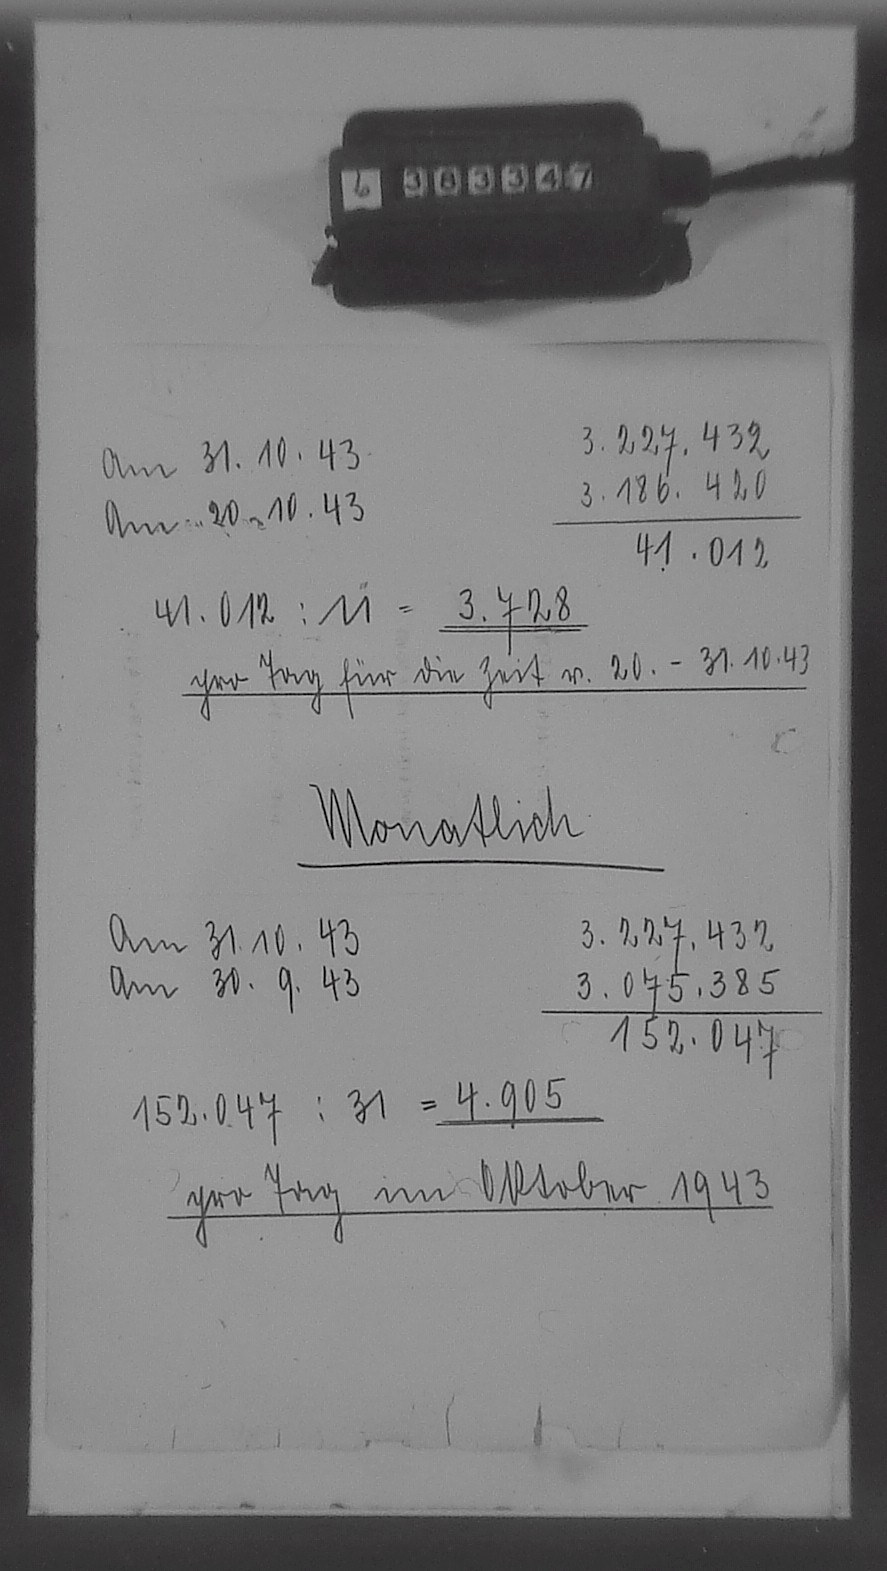 6 383347
Am 31.10.43 3.227.432
Am 20.10.43 3.186.420
41.012
41.012 : 11 = 3.728
pro Tag für die Zeit v. 20. - 31.10.43
Monatlich
Am 31.10.43 3.227.432
Am 30.9.43 3.075.385
152.047
152.047 : 31 = 4.905
pro Tag im Oktober 1943